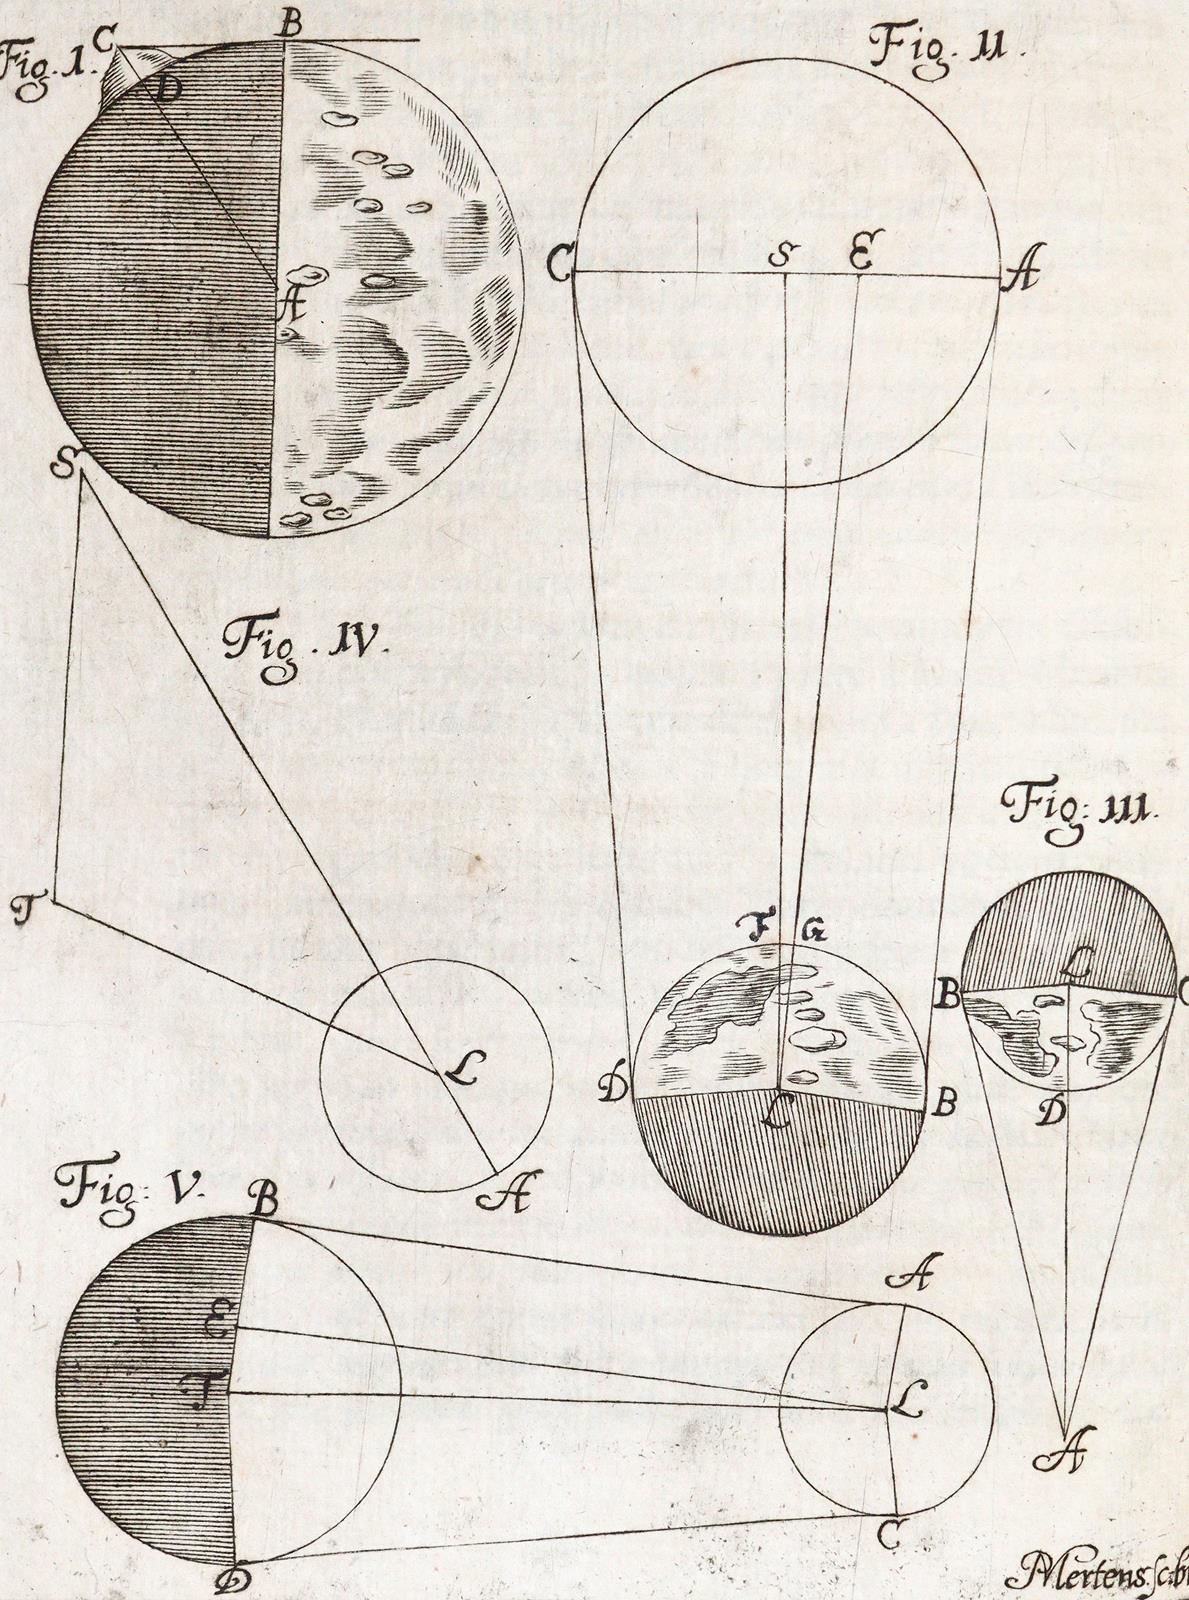 Fig. I.
C
B
D
A
Fig. II.
C
S
E
A
F
G
D
L
B
Fig: III.
L
B
C
D
A
Fig. IV.
S
T
L
A
Fig: V.
B
E
T
D
A
L
C
Mertens. sc. b